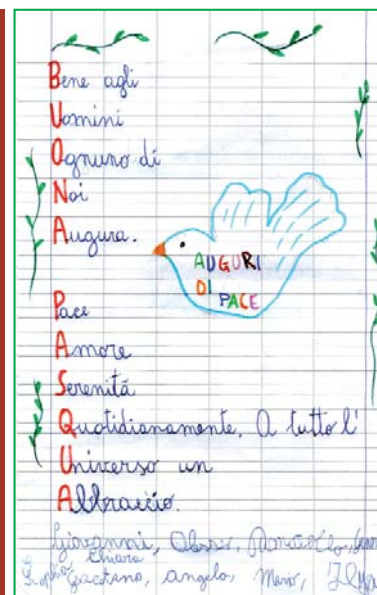 Bene agli
Uomini
Ognuno di
Noi
Augura.
AUGURI
DI
PACE
Pace
Amore
Serenità
Quotidianamente. A tutto l'
Universo un
Abbraccio.
Giovanni,
Chiara
Sophia Gaetano, Angelo,